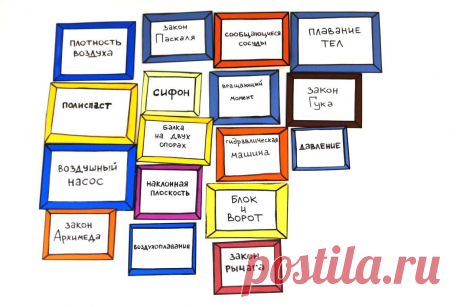 плотность
воздуха
закон
Паскаля
сообщающиеся
сосуды
плавание
тел
полиспаст
сифон
вращающий
момент
закон
Гука
балка
на двух
опорах
гидравлическая
машина
давление
воздушный
насос
наклонная
плоскость
блок
и
ворот
закон
Архимеда
воздухоплавание
закон
рычага
postila.ru